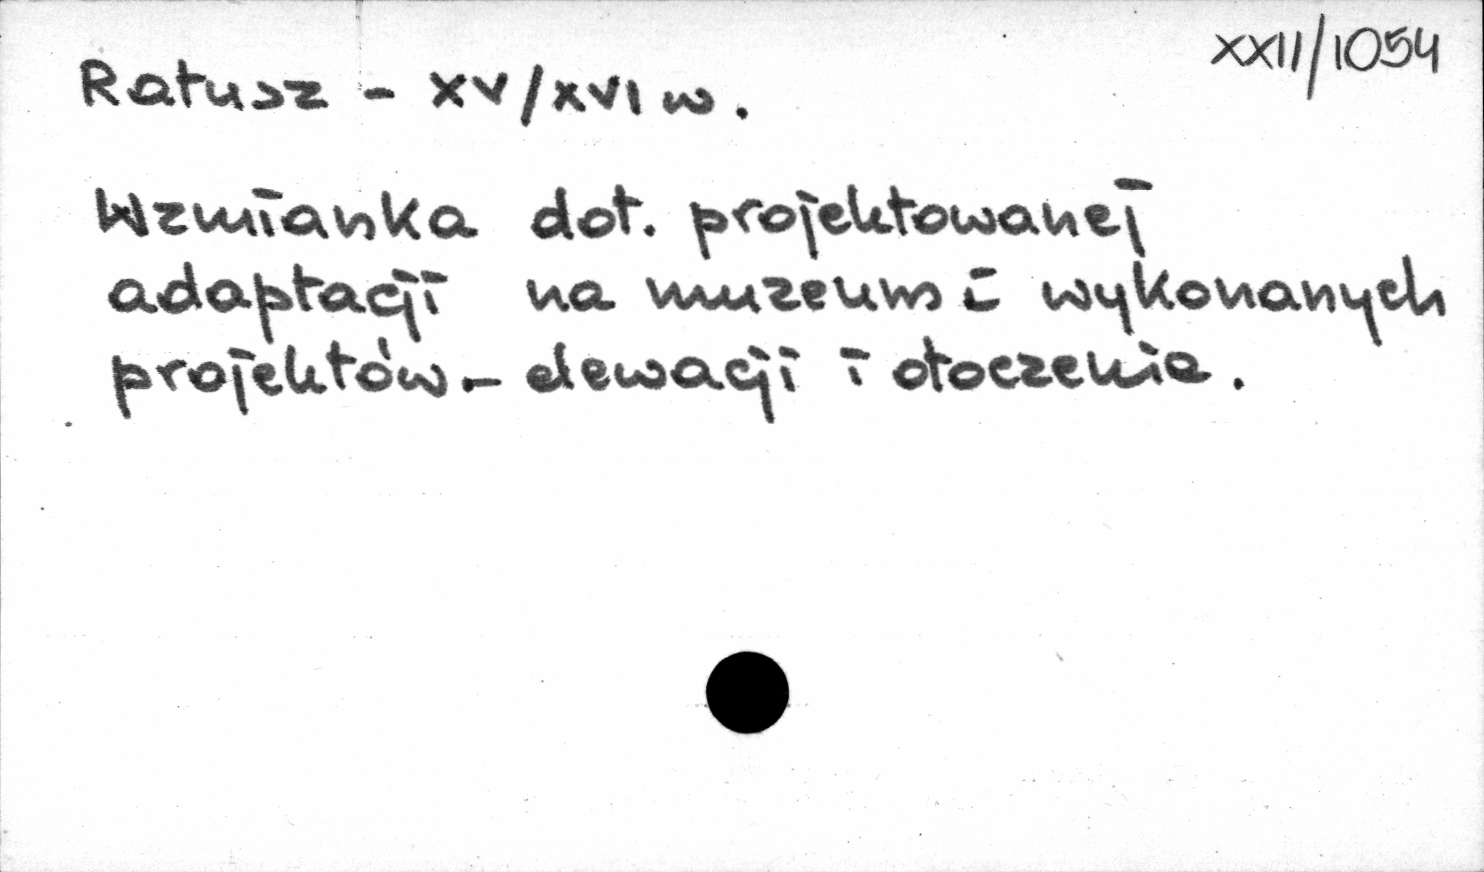 XXII/1054
Ratusz - XV/XVI w.
Wzmianka dot. projektowanej
adaptacji na muzeum i wykonanych
projektów - elewacji i otoczenia.